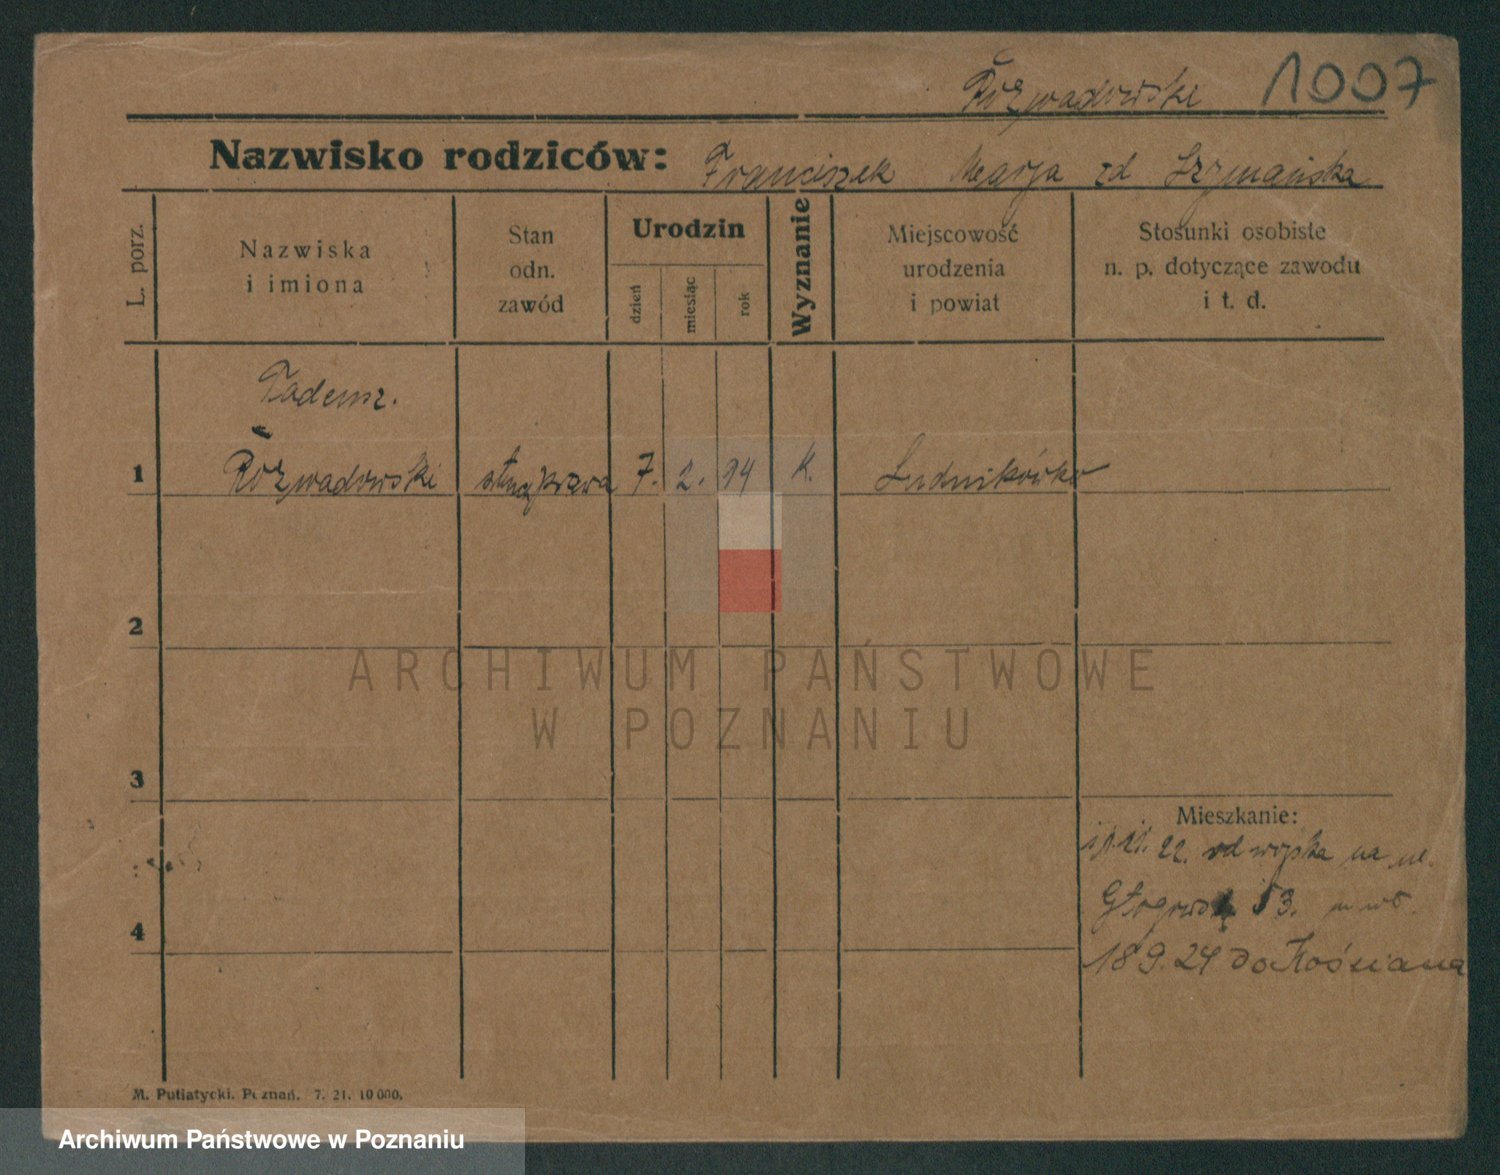 Rozwadowski 1007
Nazwisko rodziców: Franciszek Marja zd Szymańska
L. porz.
Nazwiska i imiona
Stan odn. zawód
Urodzin
dzień
miesiąc
rok
Wyznanie
Miejscowość urodzenia i powiat
Stosunki osobiste n. p. dotyczące zawodu i t. d.
Tadeusz.
1 Rozwadowski 7. 2. 94 K. Ludwikówko
2
3
Mieszkanie:
22. od wojska na ul.
4 Głogowską 53.
18 9. 24 do Kościana
M. Putiatycki. Poznań. 7. 21. 10 000.
ARCHIWUM PAŃSTWOWE
W POZNANIU
Archiwum Państwowe w Poznaniu